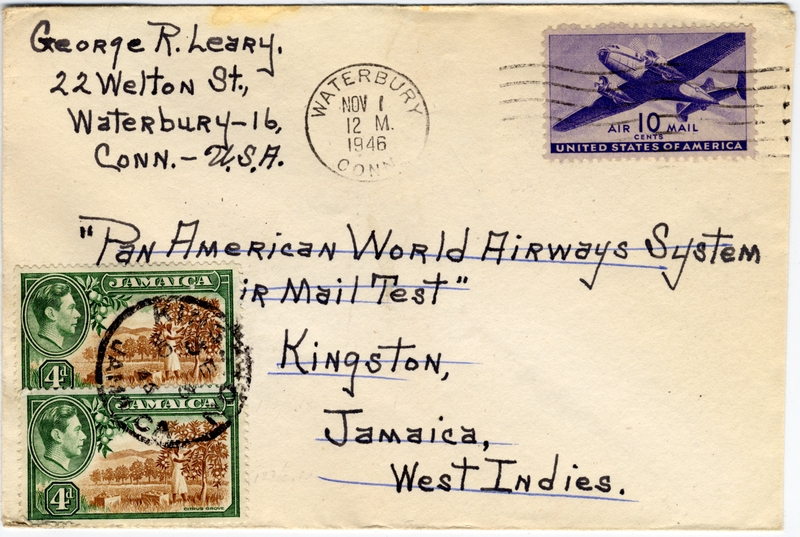 George R. Leary.
22 Welton St.,
Waterbury-16,
Conn.- U.S.A.
WATERBURY
NOV 1
12 M.
1946
CONN.
AIR 10 MAIL
CENTS
UNITED STATES OF AMERICA
"Pan American World Airways System
ir Mail Test"
Kingston,
Jamaica,
West Indies.
JAMAICA
4d
JAMAICA
4d
CITRUS GROVE
KINGSTON
JAMAICA